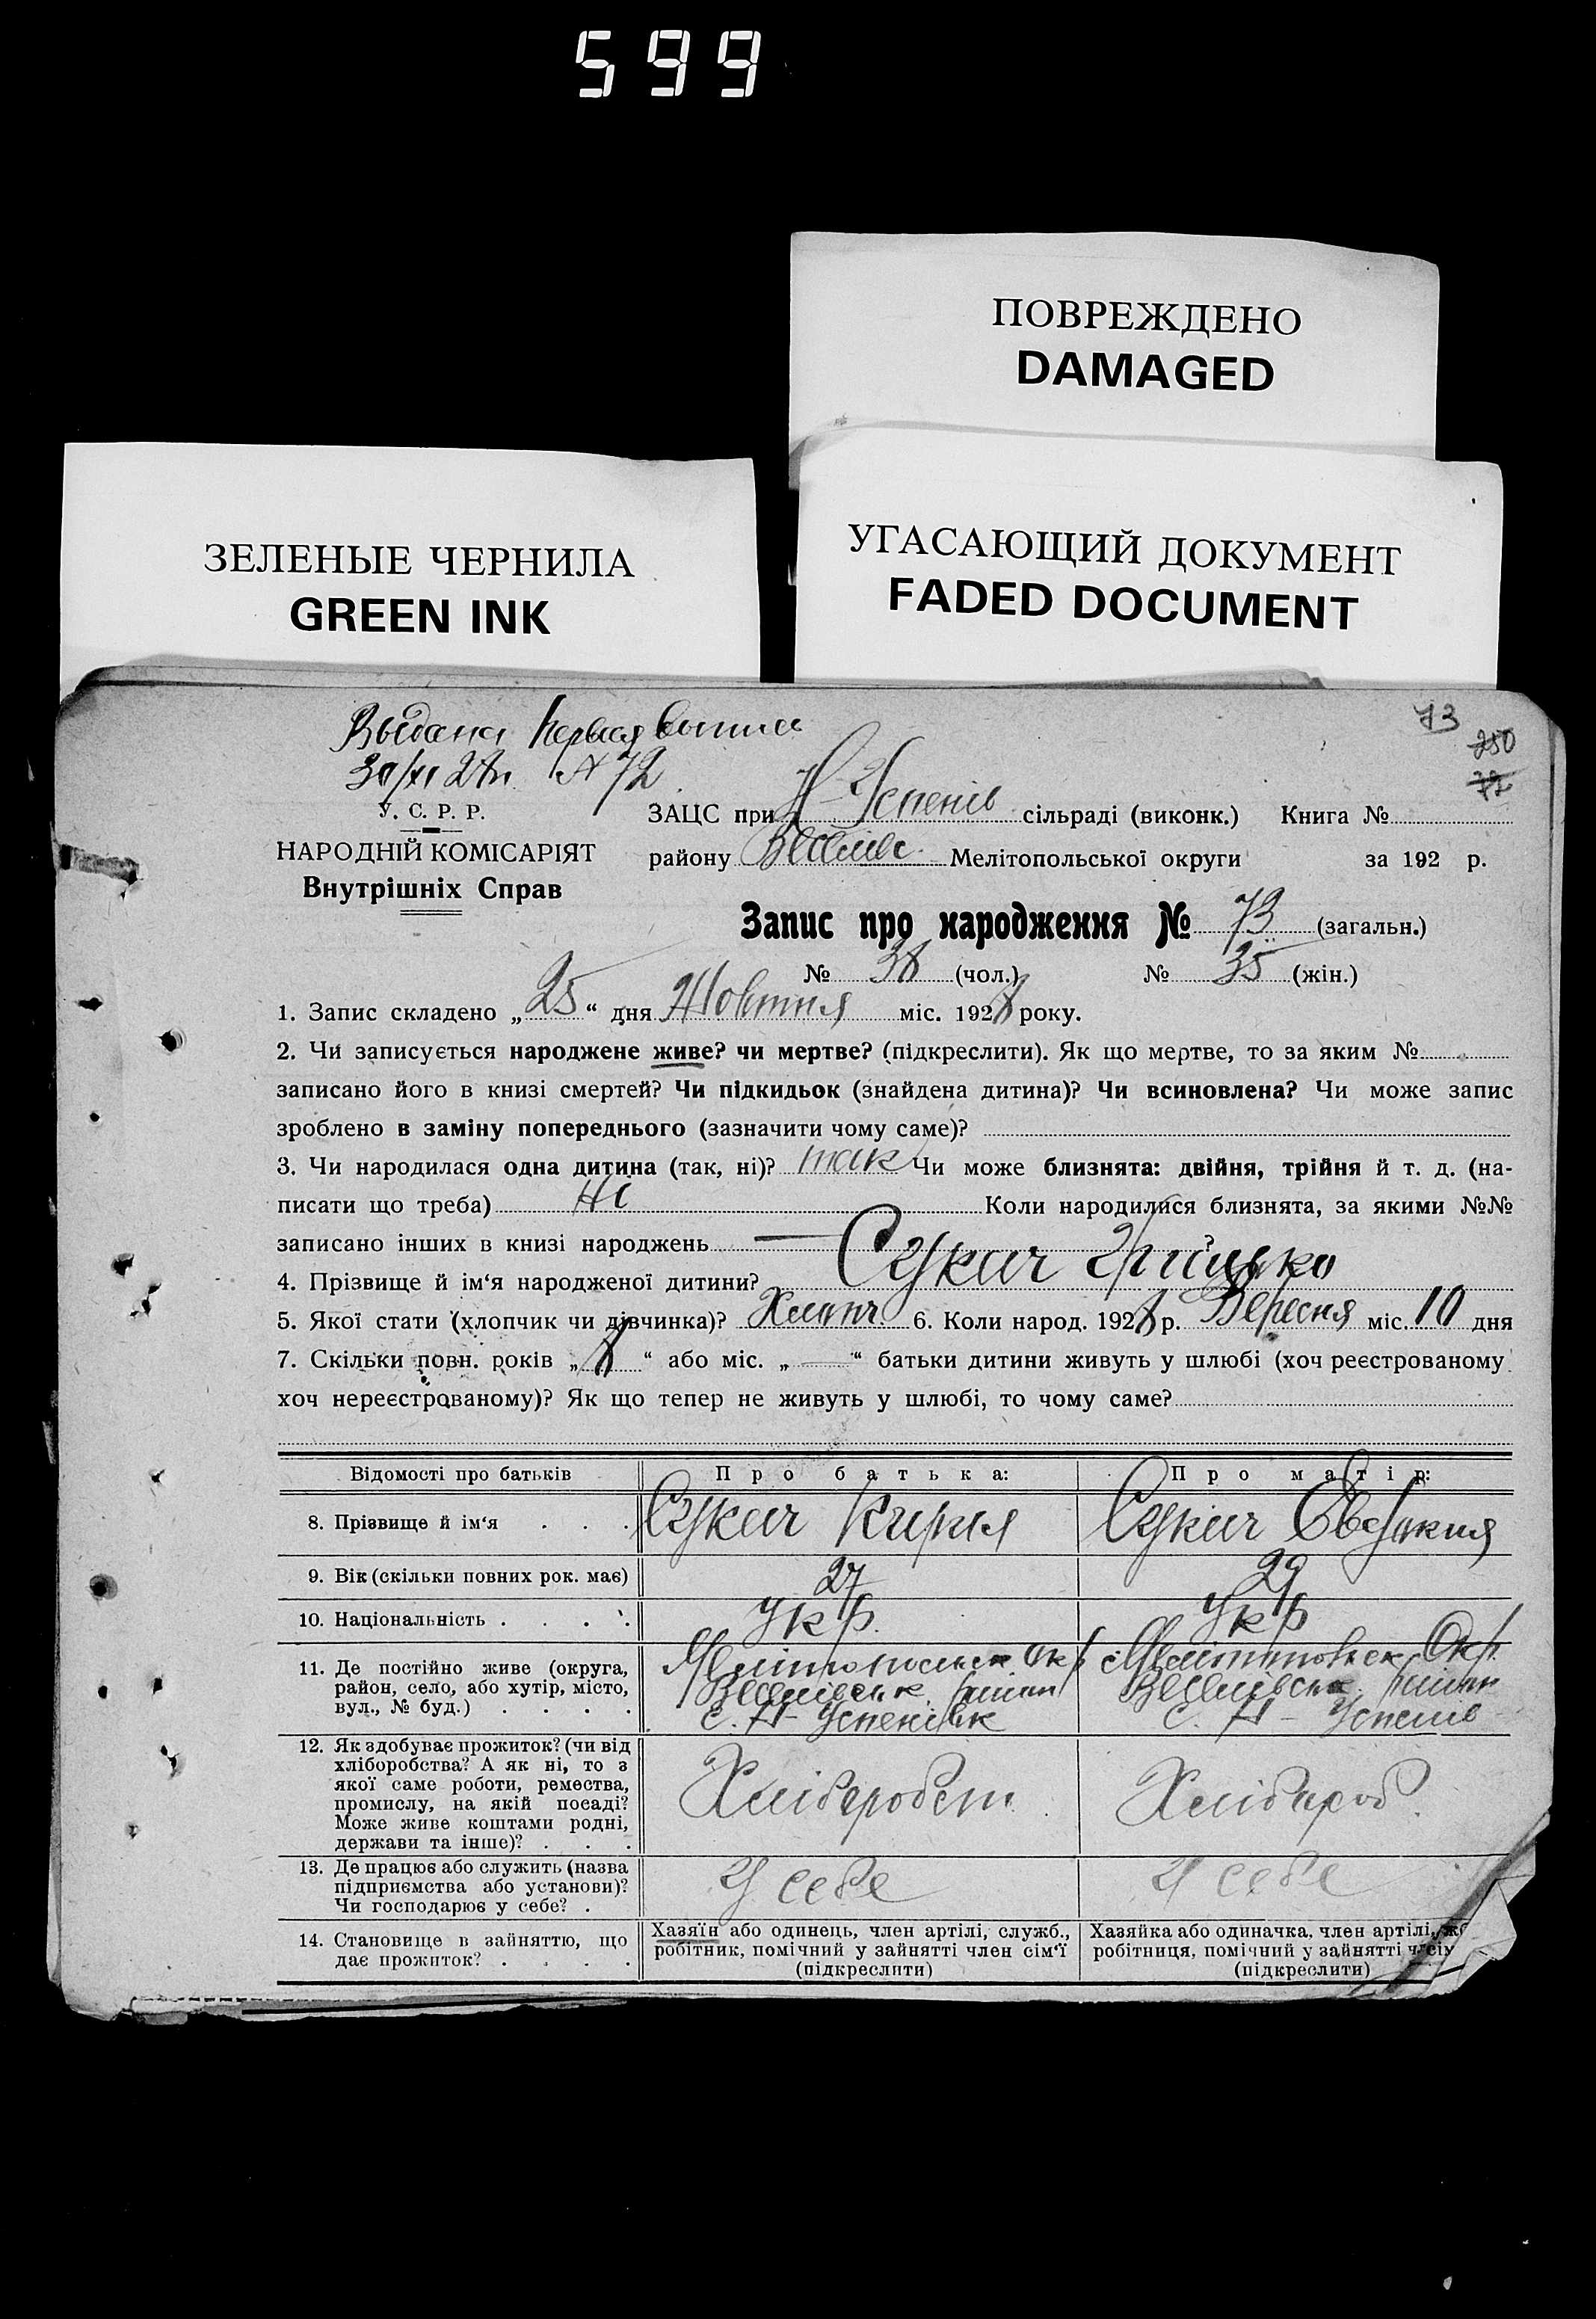 599
ПОВРЕЖДЕНО
DAMAGED
ЗЕЛЕНЫЕ ЧЕРНИЛА
GREEN INK
УГАСАЮЩИЙ ДОКУМЕНТ
FADED DOCUMENT
Выдана Первая выпись
№ 72
73
250
72
У. С. Р. Р.
НАРОДНІЙ КОМІСАРІЯТ
Внутрішніх Справ
ЗАЦС при Н-Успенів сільраді (виконк.) Книга №
району Веселівс. Мелітопольської округи за 192 р.
Запис про народження № 73 (загальн.)
№ 38 (чол.) № 35 (жін.)
1. Запис складено „ 25 “ дня Жовтня міс. 192 року.
2. Чи записується народжене живе? чи мертве? (підкреслити). Як що мертве, то за яким №
записано його в книзі смертей? Чи підкидьок (знайдена дитина)? Чи всиновлена? Чи може запис
зроблено в заміну попереднього (зазначити чому саме)?
3. Чи народилася одна дитина (так, ні)? так Чи може близнята: двійня, трійня й т. д. (на-
писати що треба) Ні Коли народилися близнята, за якими №№
записано інших в книзі народжень — ?
4. Прізвище й ім‘я народженої дитини? Сукач Грицько
5. Якої стати (хлопчик чи дівчинка)? Хлопч 6. Коли народ. 192 р. Вересня міс. 10 дня
7. Скільки повн. років „ “ або міс. „ — “ батьки дитини живуть у шлюбі (хоч реєстрованому
хоч нереєстрованому)? Як що тепер не живуть у шлюбі, то чому саме?
Відомості про батьків Про батька: Про матір:
8. Прізвище й ім‘я . . . Сукач Кирил Сукач Евдокия
9. Вік (скільки повних рок. має) 27 29
10. Національність . . . . Укр. Укр
11. Де постійно живе (округа, Мелітопольск Окр Мелітопольск Окр.
район, село, або хутір, місто, Веселівськ. район Веселівськ. район
вул., № буд.) . . . . с. Н-Успенівк с. Н-Успенів
12. Як здобуває прожиток? (чи від
хліборобства? А як ні, то з
якої саме роботи, ремества,
промислу, на якій посаді?
Може живе коштами родні,
держави та інше)? . . . Хліборобст. Хлібороб.
13. Де працює або служить (назва
підприємства або установи)?
Чи господарює у себе? . У себе У себе
14. Становище в зайняттю, що
дає прожиток? . . . .
Хазяїн або одинець, член артілі, служб.,
робітник, помічний у зайнятті член сім‘ї
(підкреслити)
Хазяйка або одиначка, член артілі,
робітниця, помічний у зайнятті
(підкреслити)